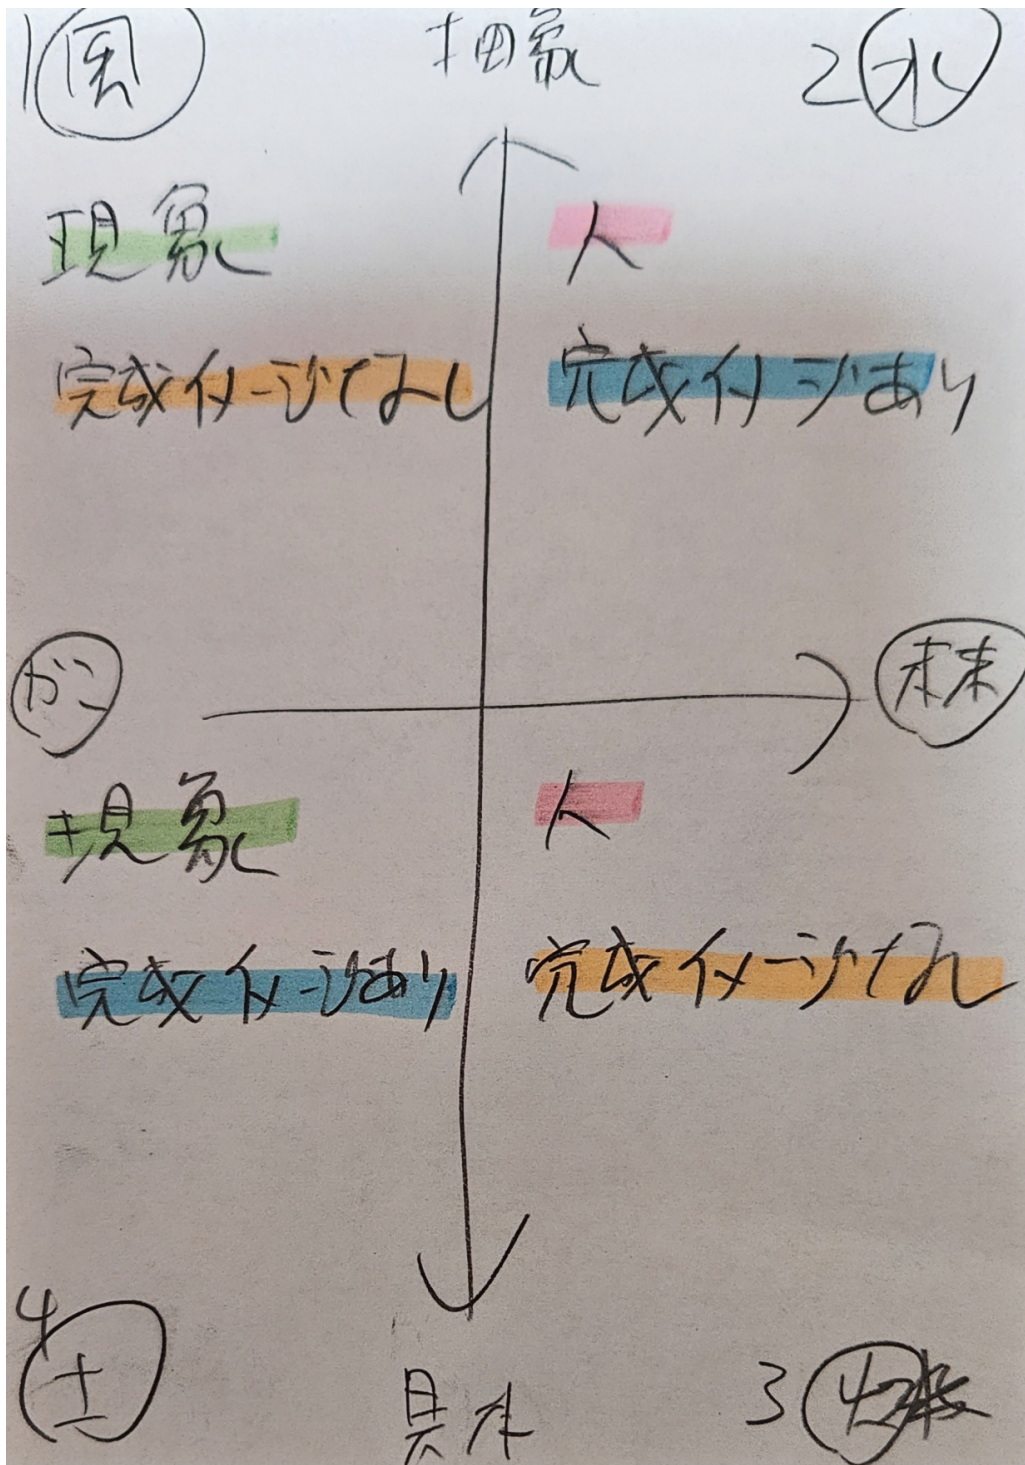 1 風
抽象
2 水
現象
人
完成イメージなし
完成イメージあり
かこ
未来
現象
人
完成イメージあり
完成イメージなし
4
土
具体
3